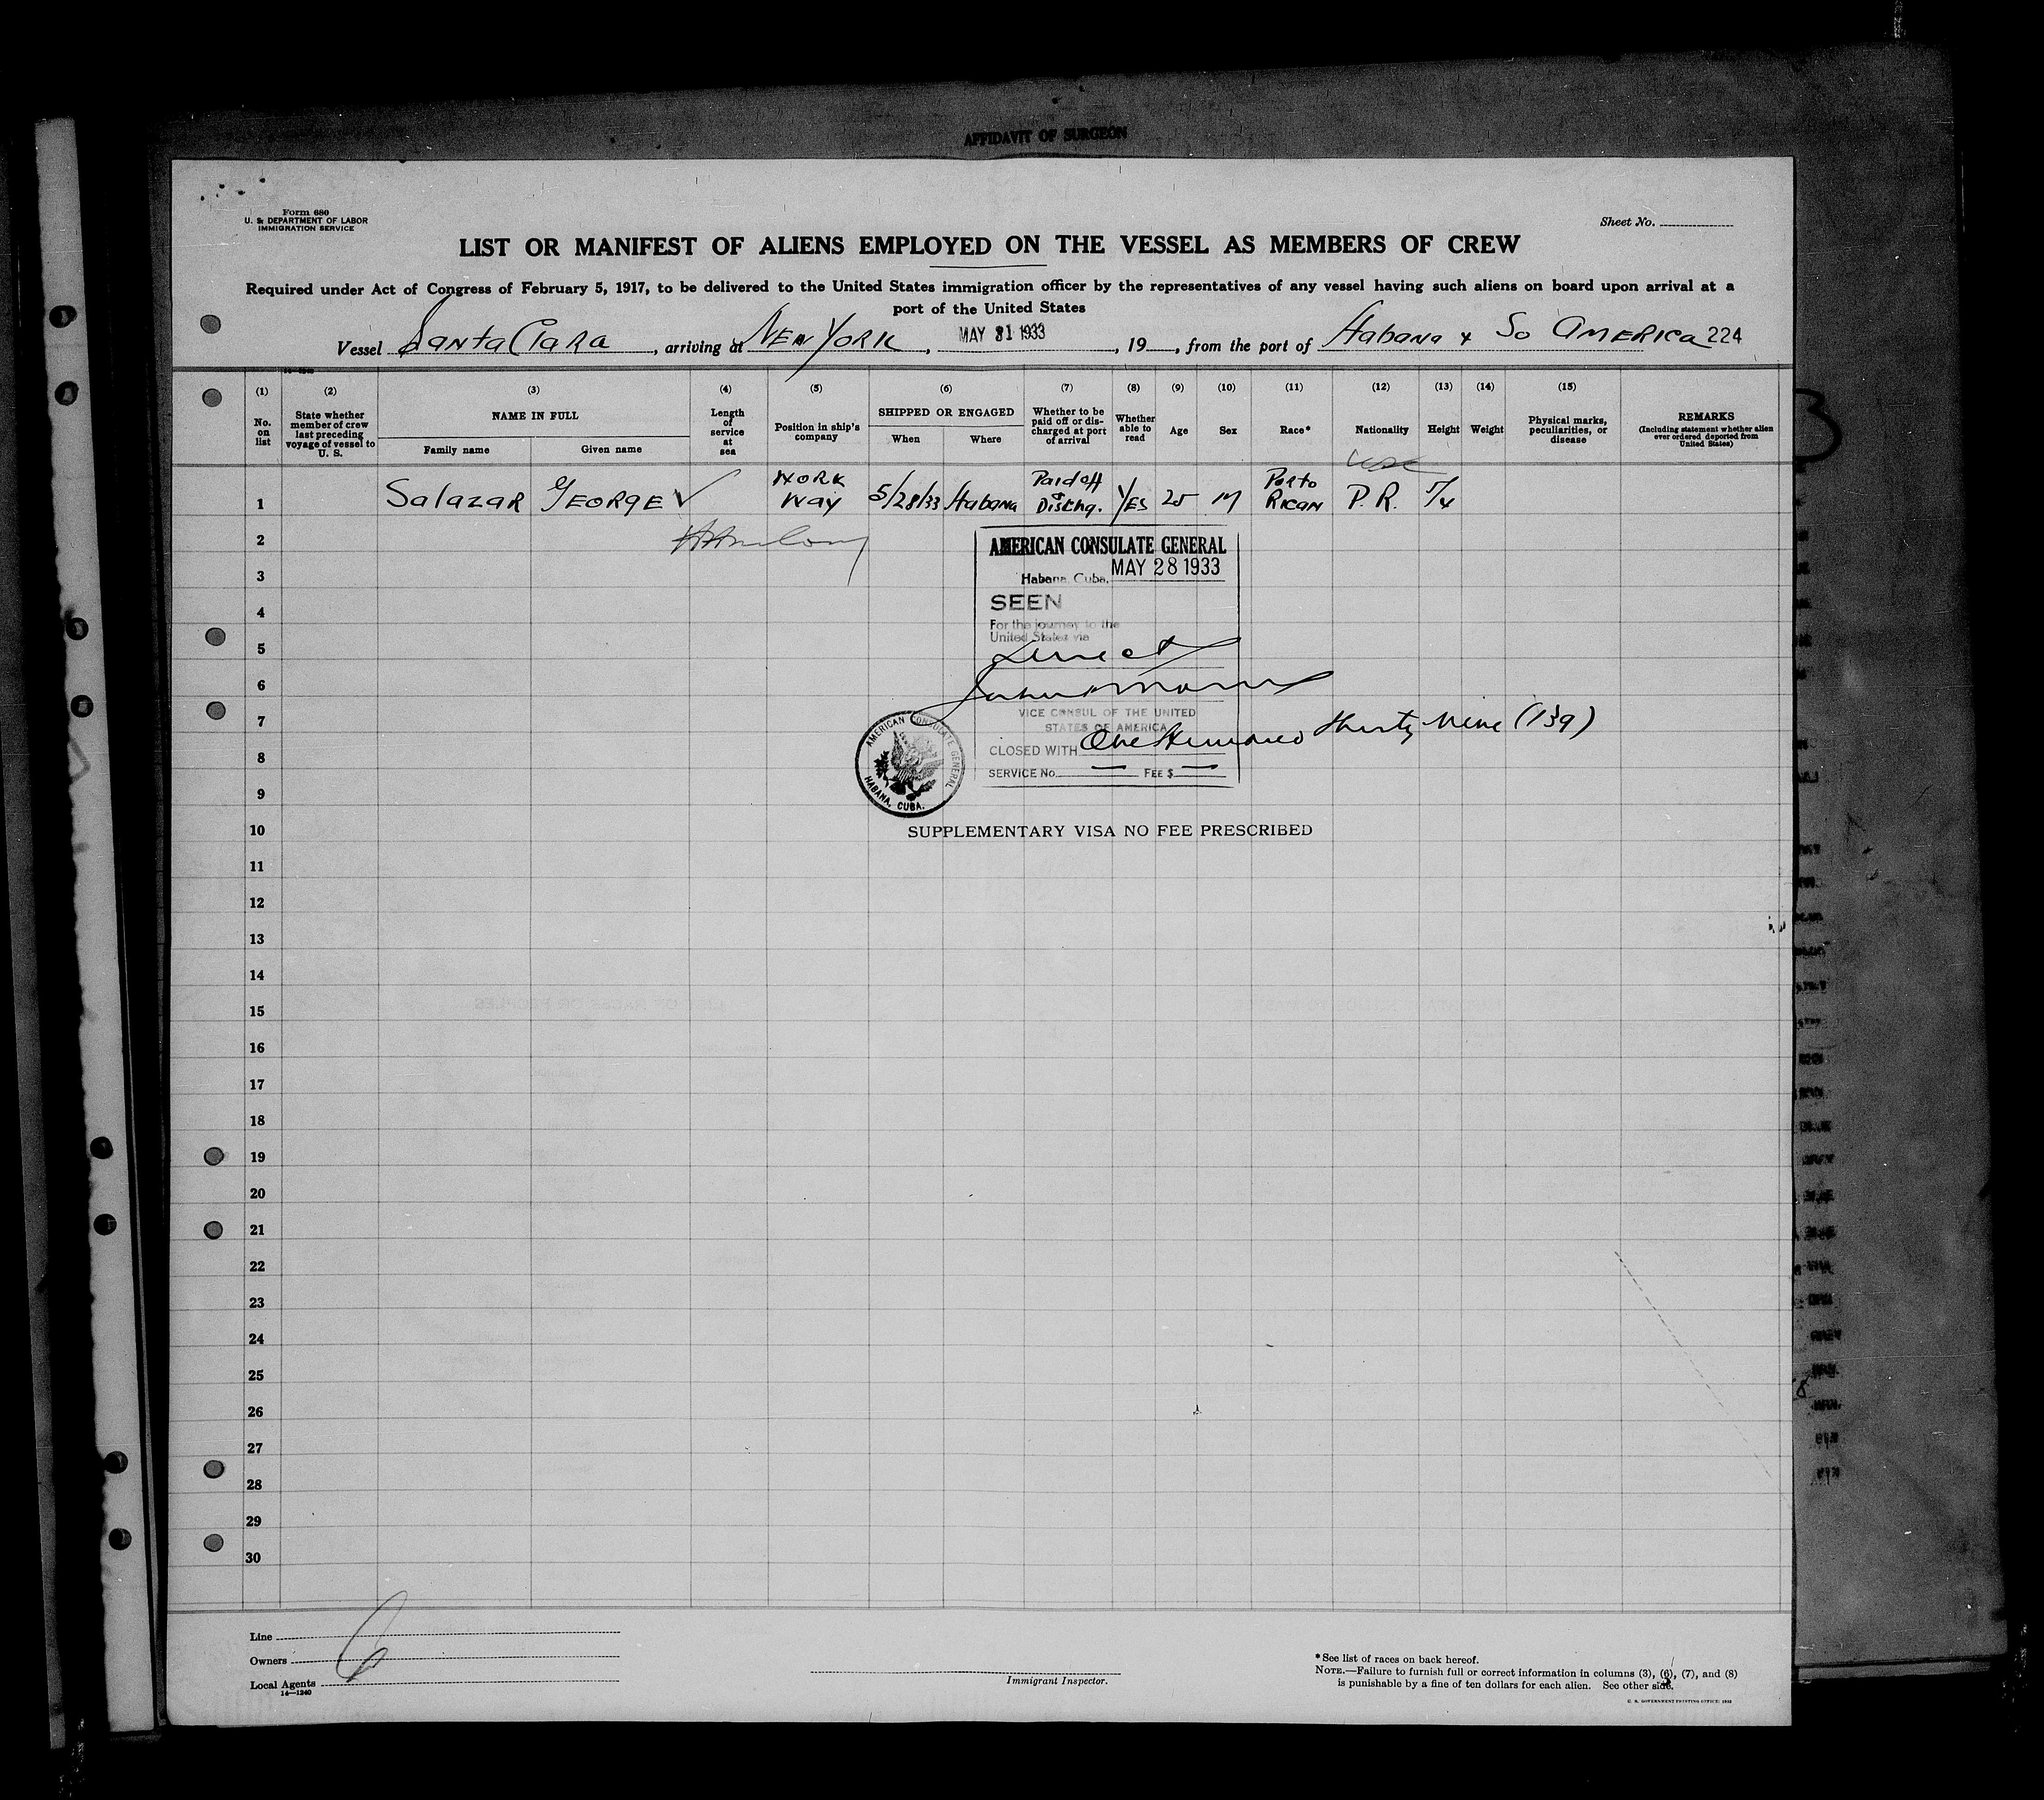 AFFIDAVIT OF SURGEON
Form 680
U. S. DEPARTMENT OF LABOR
IMMIGRATION SERVICE
Sheet No.
LIST OR MANIFEST OF ALIENS EMPLOYED ON THE VESSEL AS MEMBERS OF CREW
Required under Act of Congress of February 5, 1917, to be delivered to the United States immigration officer by the representatives of any vessel having such aliens on board upon arrival at a
port of the United States
Vessel Santa Clara, arriving at New York, MAY 31 1933, 19, from the port of Habana & So America 224
(1) (2) (3) (4) (5) (6) (7) (8) (9) (10) (11) (12) (13) (14) (15)
No. on list
State whether member of crew last preceding voyage of vessel to U. S.
NAME IN FULL
Family name
Given name
Length of service at sea
Position in ship's company
SHIPPED OR ENGAGED
When
Where
Whether to be paid off or discharged at port of arrival
Whether able to read
Age
Sex
Race*
Nationality
Height
Weight
Physical marks, peculiarities, or disease
REMARKS
(Including statement whether alien ever ordered deported from United States)
1 Salazar GEORGE Work Way 5/28/33 Habana Paid off & Dischg. Yes 25 M Porto Rican P.R. 5/4
2
3
4
5
6
7
8
9
10
11
12
13
14
15
16
17
18
19
20
21
22
23
24
25
26
27
28
29
30
AMERICAN CONSULATE GENERAL
Habana, Cuba, MAY 28 1933
SEEN
For the journey to the
United States via
Direct
VICE CONSUL OF THE UNITED
STATES OF AMERICA
CLOSED WITH One Hundred Thirty Nine (139)
SERVICE No. — FEE $ —
AMERICAN CONSULATE GENERAL
HABANA, CUBA.
SUPPLEMENTARY VISA NO FEE PRESCRIBED
Line
Owners
Local Agents
14—1240
Immigrant Inspector.
* See list of races on back hereof.
NOTE.—Failure to furnish full or correct information in columns (3), (6), (7), and (8)
is punishable by a fine of ten dollars for each alien. See other side.
U. S. GOVERNMENT PRINTING OFFICE: 1932